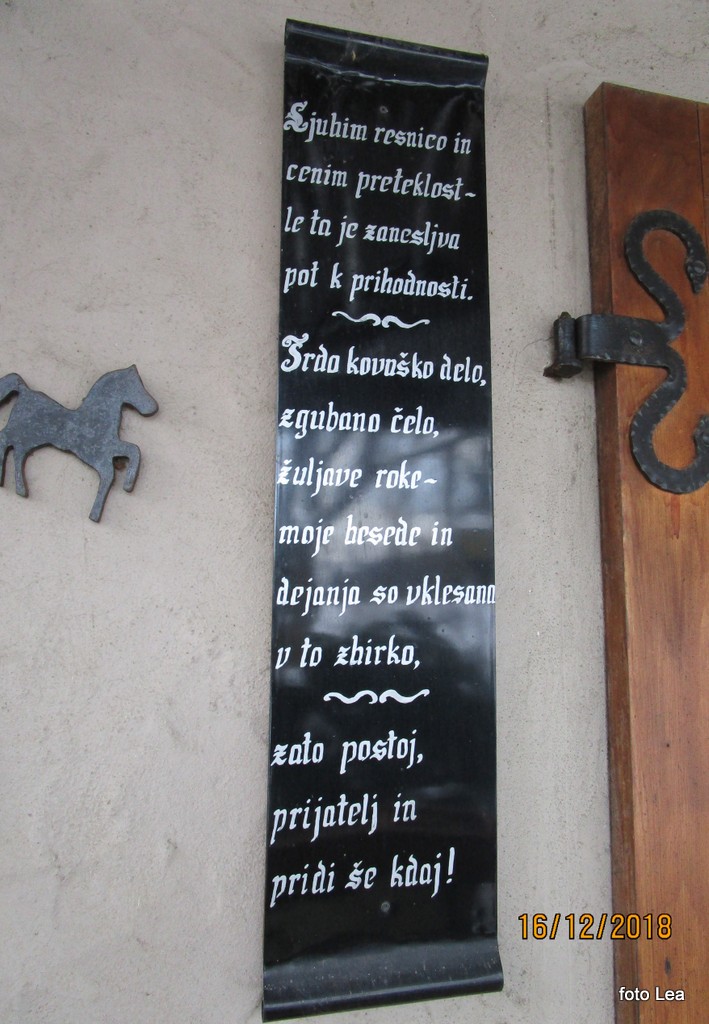 Ljubim resnico in
cenim preteklost-
le ta je zanesljva
pot k prihodnosti.
Trdo kovaško delo,
zgubano čelo,
žuljave roke-
moje besede in
dejanja so vklesana
v to zbirko,
zato postoj,
prijatelj in
pridi še kdaj!
16/12/2018
foto Lea